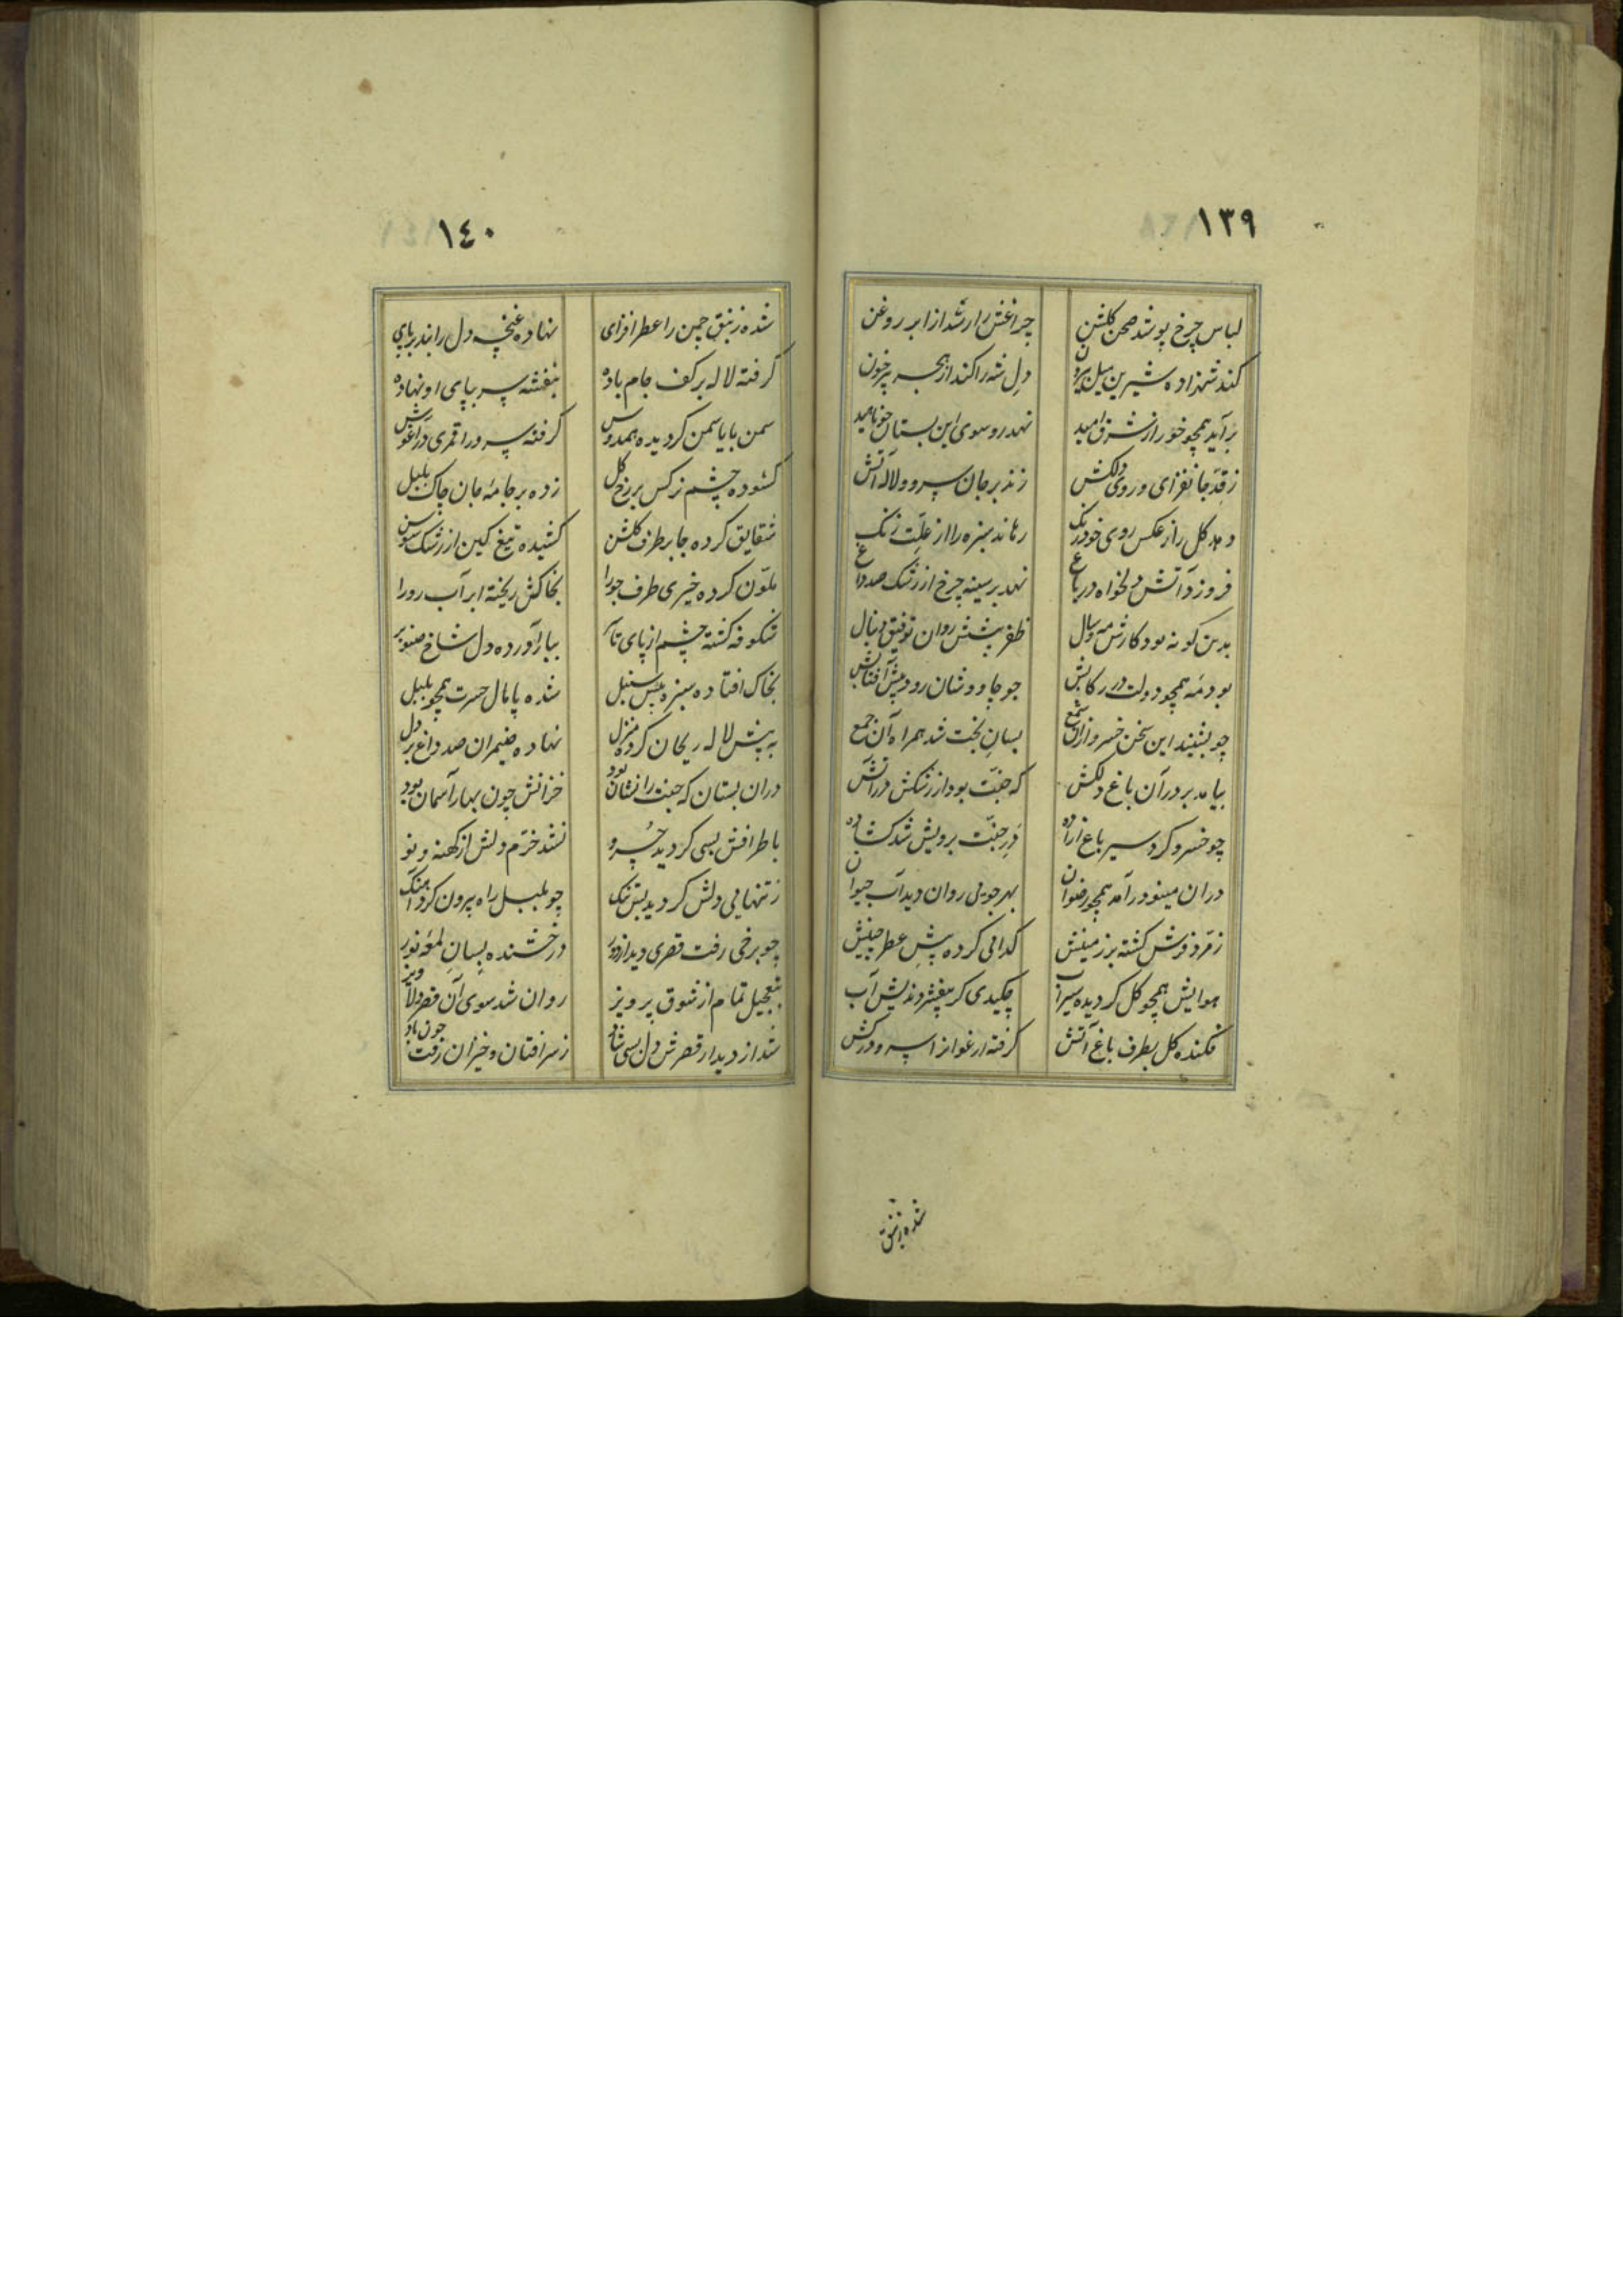 ١٣٩
لباس چرخ پوشد صحن كلشن چراغش را رشد از ابر روغن
كند شهزاده شيرين ميل بيرون دل شه را كند از هجر پرخون
بر آيد همچو خور از شرق اميد نهد رو سوى اين بستان چو ناهيد
ز قدّ جانفزاى و روى دلكش زند بر جان سرو و لاله آتش
دهد كل را ز عكس روى خود رنك رهاند سبزه را از علّت زنك
فروزد آتش دلخواه در باغ نهد بر سينه چرخ از رشك صد داغ
بدين كونه بود كارش مه و سال ظفر پشتش روان توفيق دنبال
بود مه همچو دولت در ركابش چو چاووشان رود پيش آفتابش
چو بشنيد اين سخن خسرو از آن شمع بسان بخت شد همراه آن جمع
بيامد بر در آن باغ دلكش كه جنّت بود از رشكش در آتش
چو خسرو كرد سير باغ آزاده در جنّت برويش شد كشاده
در آن مينو در آمد همچو رضوان بهر جويى روان ديد آب حيوان
زمرّد فرش كشته بر زمينش كدايى كرده پيش عطر چينش
هوايش همچو كل كرديده سيراب چكيدى كر بيفشردنديش آب
فكنده كل بطرف باغ آتش كرفته ارغوانرا سرو در كش
شده زنبق
١٤٠
شده زنبق چمن را عطر افزاى نهاده غنچه دل را بند بر پاى
كرفته لاله بر كف جام باده بنفشه سر بپاى او نهاده
سمن با ياسمن كرديده همدوش كرفته سرو را قمرى در آغوش
كشوده چشم نركس بر رخ كل زده بر جامهٔ جان چاك بلبل
شقايق كرده جا بر طرف كلشن كشيده تيغ كين از رشك سوسن
ملوّن كرده خيرى طرف جو را بخاكش ريخته ابر آب رو را
شكوفه كشته چشم از پاى تا سر ببار آورده دل شاخ صنوبر
بخاك افتاده سبزه پيش سنبل شده پامال حسرت همچو بلبل
به پيش لاله ريحان كرده منزل نهاده ضيمران صد داغ بر دل
در آن بستان كه جنت را نشان بود خزانش چون بهار آسمان بود
باطرافش بسى كرديد خسرو نشد خرّم دلش از كهنه و نو
ز تنهايى دلش كرديد بس تنك چو بلبل راه بيرون كرد آهنك
چو برخى رفت قصرى ديد از دور درخشنده بسان لمعهٔ نور
بتعجيل تمام از شوق پرويز روان شد سوى آن قصر دلاويز
شد از ديدار قصرش دل بسى شاد ز سر افتان و خيزان رفت چون باد